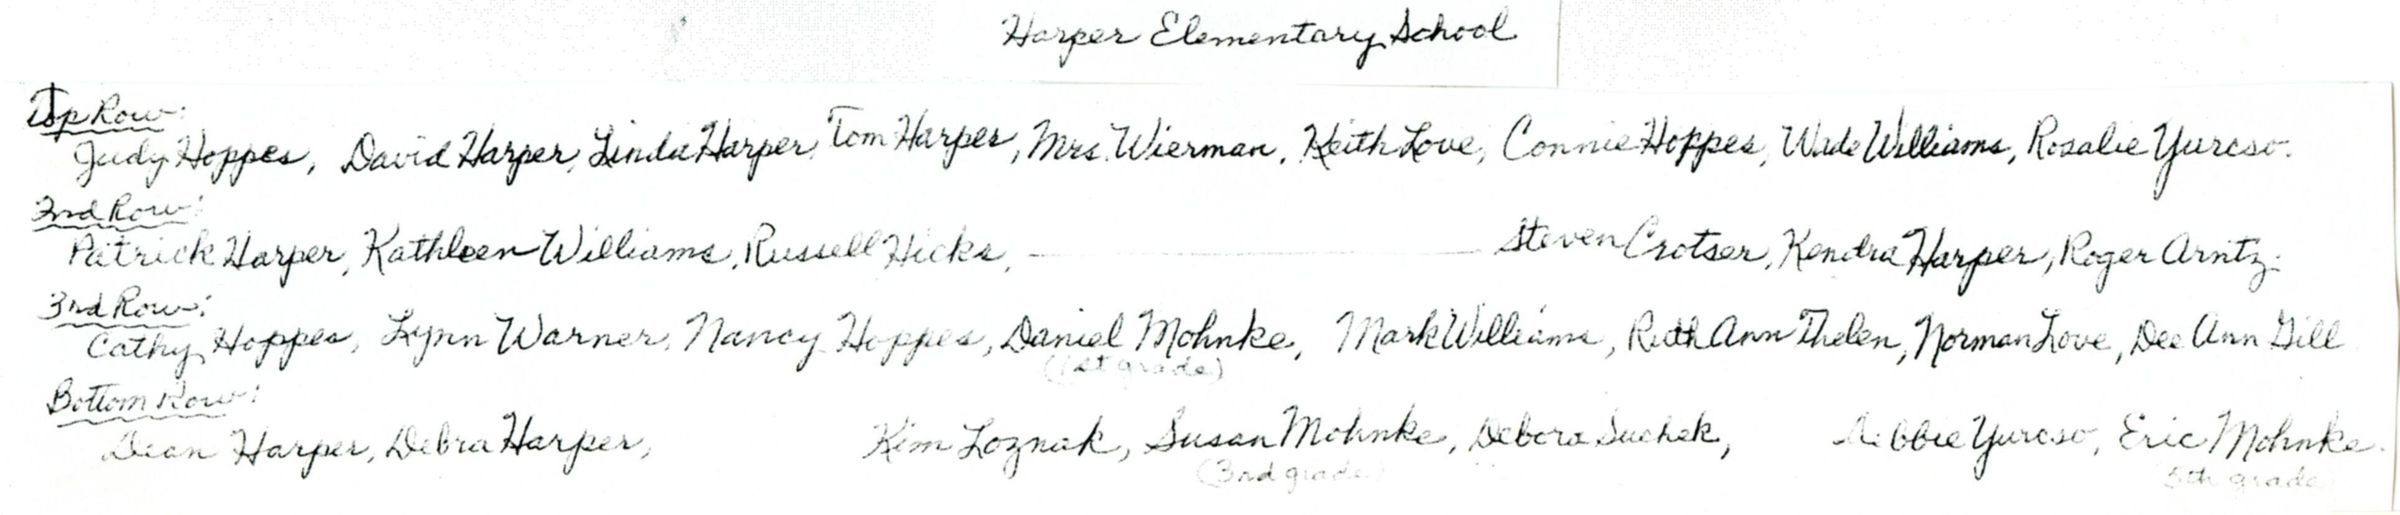 Harper Elementary School
Top Row:
Judy Hoppes, David Harper, Linda Harper, Tom Harper, Mrs. Wierman, Keith Love, Connie Hoppes, Wade Williams, Rosalie Yurcso.
2nd Row:
Patrick Harper, Kathleen Williams, Russell Hicks, Steven Crotser, Kendra Harper, Roger Arntz.
3rd Row:
Cathy Hoppes, Lynn Warner, Nancy Hoppes, Daniel Mohnke, Mark Williams, Ruth Ann Thelen, Norman Love, Dee Ann Gill
(1st grade)
Bottom Row:
Dean Harper, Debra Harper, Kim Loznak, Susan Mohnke, Debora Suchek, Debbie Yurcso, Eric Mohnke.
(3rd grade) 5th grade